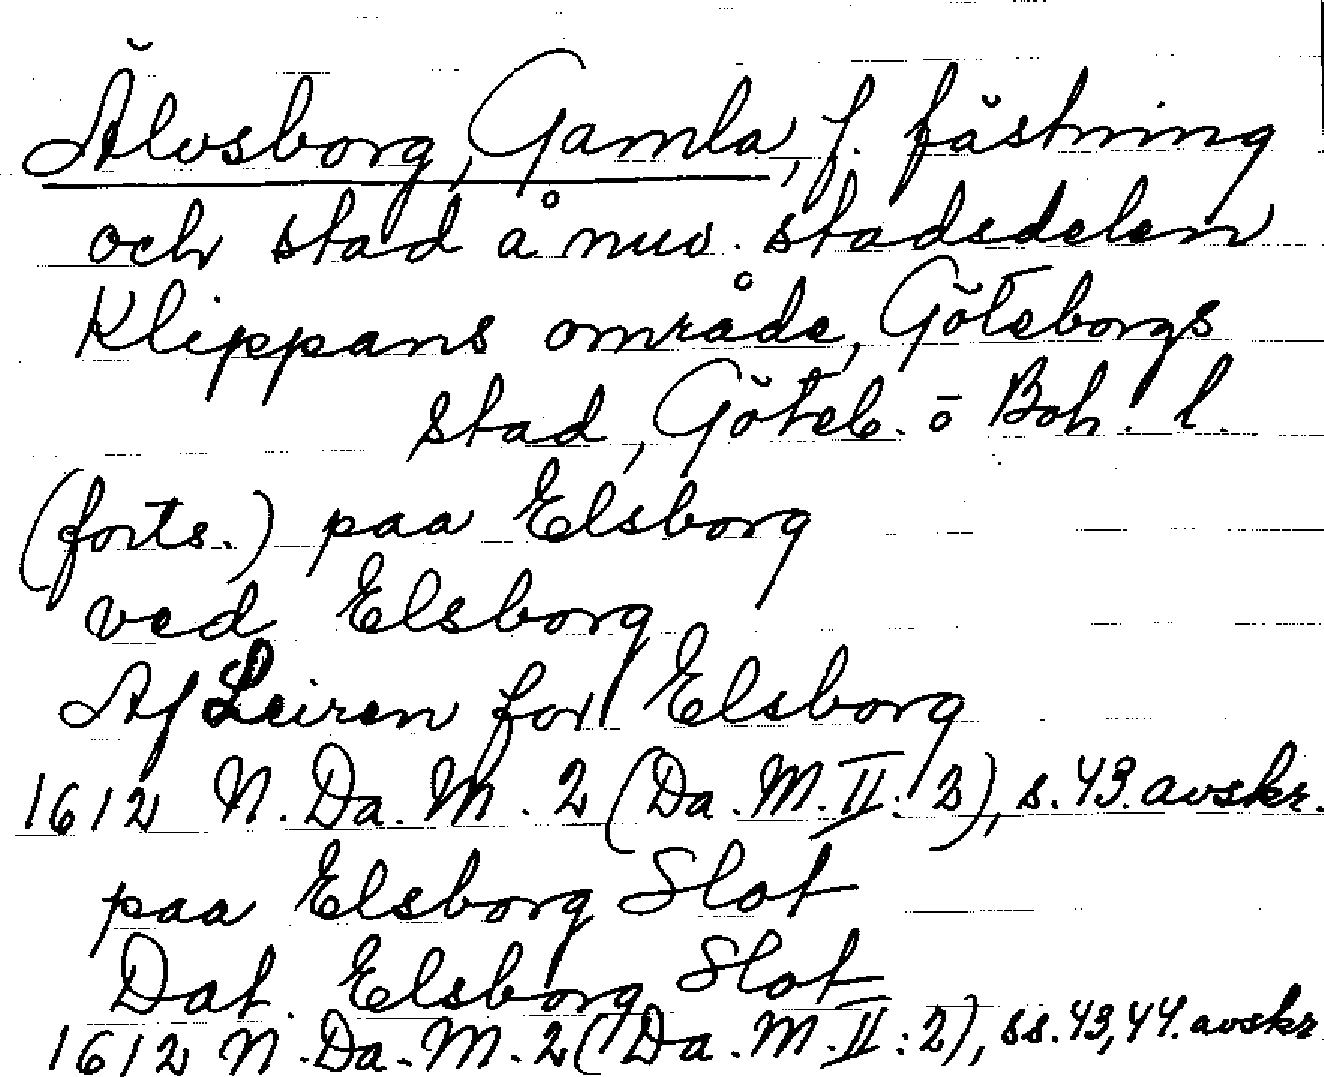 Älvsborg, Gamla, f. fästning
och stad å nuv. stadsdelen
Klippans område, Göteborgs
stad, Göteb. o Boh. l.
(forts.) paa Elsborg
ved Elsborg
Af Leiren for Elsborg
1612 N. Da. M. 2 (Da. M. II: 2), s. 43. avskr.
paa Elsborg Slot
Dat. Elsborg Slot
1612 N. Da. M. 2 (Da. M. II: 2), ss. 43, 44. avskr